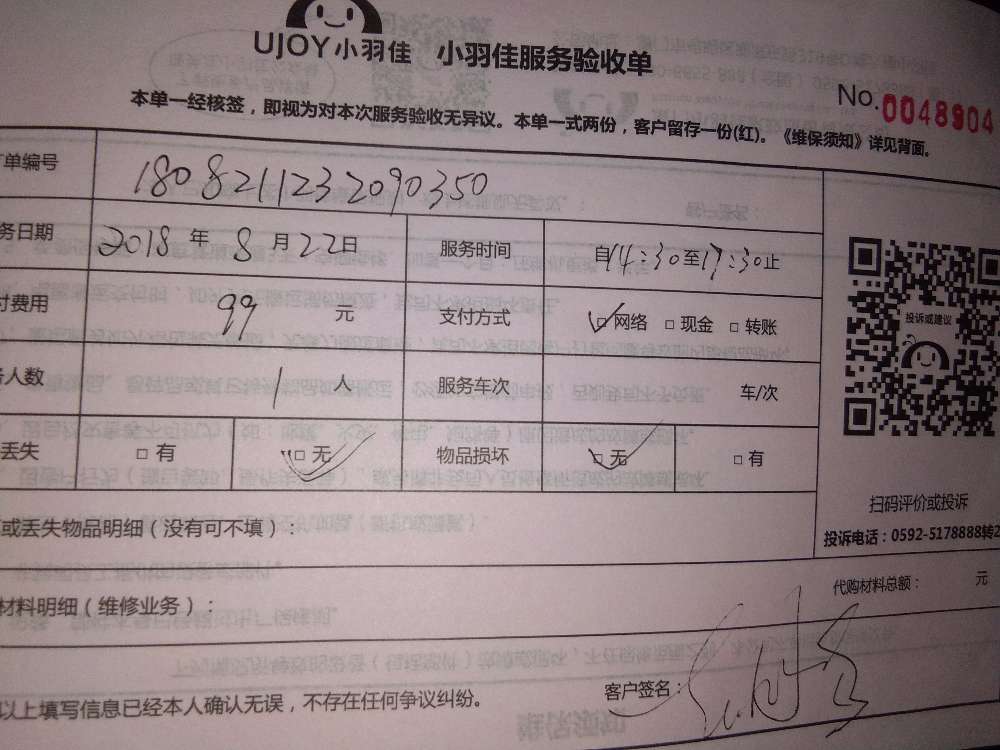 UJOY小羽佳 小羽佳服务验收单
No.0048904
本单一经核签，即视为对本次服务验收无异议。本单一式两份，客户留存一份(红)。《维保须知》详见背面。
单编号 1808211232090350
务日期 2018年8月22日 服务时间 自14:30至17:30止
付费用 99元 支付方式 □网络 □现金 □转账
投诉或建议
人数 1人 服务车次 车/次
丢失 □有 □无 物品损坏 □无 □有
扫码评价或投诉
投诉电话：0592-5178888转2
或丢失物品明细（没有可不填）：
代购材料总额： 元
材料明细（维修业务）：
以上填写信息已经本人确认无误，不存在任何争议纠纷。 客户签名：